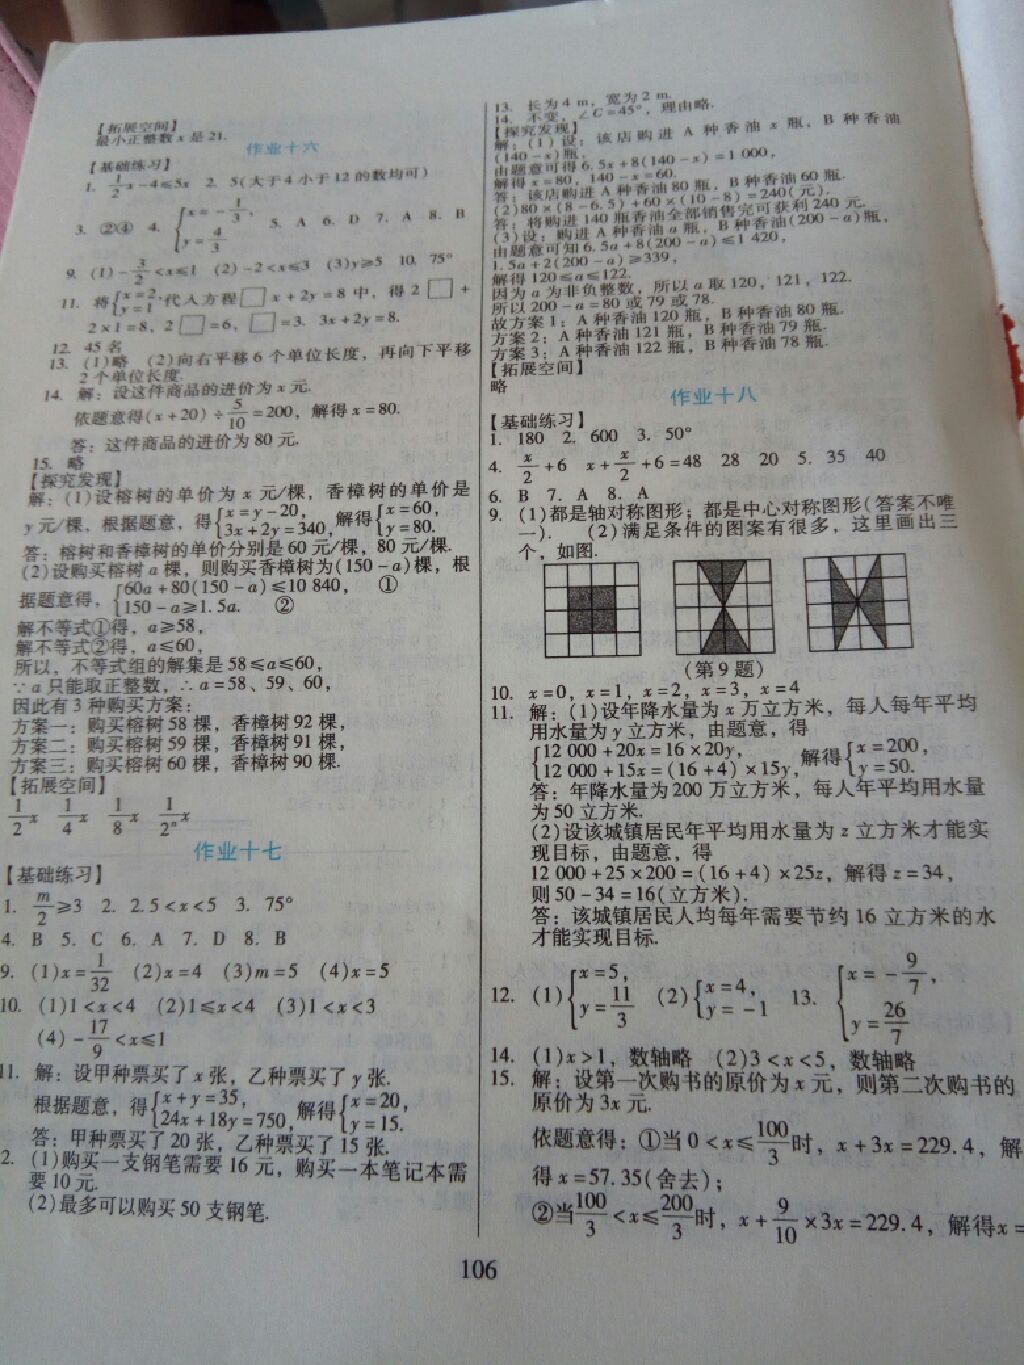 【拓展空间】
最小正整数 x 是 21.
作业十六
【基础练习】
1. 1/2x-4≤5x 2. 5(大于 4 小于 12 的数均可)
3. ②④ 4. {x=-1/3, y=4/3 5. A 6. D 7. A 8. B
9. (1)-3/2<x≤1 (2)-2<x≤3 (3)y≥5 10. 75°
11. 将{x=2, y=1 代入方程□x+2y=8 中，得 2□+
2×1=8，2□=6，□=3. 3x+2y=8.
12. 45 名
13. (1)略 (2)向右平移 6 个单位长度，再向下平移
2 个单位长度.
14. 解：设这件商品的进价为 x 元.
依题意得(x+20)÷5/10=200，解得 x=80.
答：这件商品的进价为 80 元.
15. 略
【探究发现】
解：(1)设榕树的单价为 x 元/棵，香樟树的单价是
y 元/棵，根据题意，得{x=y-20, 3x+2y=340, 解得{x=60, y=80.
答：榕树和香樟树的单价分别是 60 元/棵，80 元/棵.
(2)设购买榕树 a 棵，则购买香樟树为(150-a)棵，根
据题意得，{60a+80(150-a)≤10 840, ① 150-a≥1.5a. ②
解不等式①得，a≥58，
解不等式②得，a≤60，
所以，不等式组的解集是 58≤a≤60，
∵a 只能取正整数，∴a=58、59、60，
因此有 3 种购买方案：
方案一：购买榕树 58 棵，香樟树 92 棵，
方案二：购买榕树 59 棵，香樟树 91 棵，
方案三：购买榕树 60 棵，香樟树 90 棵.
【拓展空间】
1/2x 1/4x 1/8x 1/2ⁿx
作业十七
【基础练习】
1. m/2≥3 2. 2.5<x<5 3. 75°
4. B 5. C 6. A 7. D 8. B
9. (1)x=1/32 (2)x=4 (3)m=5 (4)x=5
10. (1)1<x<4 (2)1≤x<4 (3)1<x<3
(4)-17/9<x≤1
11. 解：设甲种票买了 x 张，乙种票买了 y 张.
根据题意，得{x+y=35, 24x+18y=750, 解得{x=20, y=15.
答：甲种票买了 20 张，乙种票买了 15 张.
2. (1)购买一支钢笔需要 16 元，购买一本笔记本需
要 10 元.
(2)最多可以购买 50 支钢笔.
13. 长为 4 m，宽为 2 m.
14. 不变，∠C=45°，理由略.
【探究发现】
解：(1)设：该店购进 A 种香油 x 瓶，B 种香油
(140-x)瓶，
由题意可得 6.5x+8(140-x)=1 000，
解得 x=80，140-x=60.
答：该店购进 A 种香油 80 瓶，B 种香油 60 瓶.
(2)80×(8-6.5)+60×(10-8)=240(元).
答：将购进 140 瓶香油全部销售完可获利 240 元.
(3)设：购进 A 种香油 a 瓶，B 种香油(200-a)瓶，
由题意可知 6.5a+8(200-a)≤1 420，
1.5a+2(200-a)≥339，
解得 120≤a≤122.
因为 a 为非负整数，所以 a 取 120，121，122.
所以 200-a=80 或 79 或 78.
故方案 1：A 种香油 120 瓶，B 种香油 80 瓶.
方案 2：A 种香油 121 瓶，B 种香油 79 瓶.
方案 3：A 种香油 122 瓶，B 种香油 78 瓶.
【拓展空间】
略
作业十八
【基础练习】
1. 180 2. 600 3. 50°
4. x/2+6 x+x/2+6=48 28 20 5. 35 40
6. B 7. A 8. A
9. (1)都是轴对称图形；都是中心对称图形(答案不唯
一). (2)满足条件的图案有很多，这里画出三
个，如图.
(第 9 题)
10. x=0，x=1，x=2，x=3，x=4
11. 解：(1)设年降水量为 x 万立方米，每人每年平均
用水量为 y 立方米，由题意，得
{12 000+20x=16×20y, 12 000+15x=(16+4)×15y, 解得{x=200, y=50.
答：年降水量为 200 万立方米，每人年平均用水量
为 50 立方米.
(2)设该城镇居民年平均用水量为 z 立方米才能实
现目标，由题意，得
12 000+25×200=(16+4)×25z，解得 z=34，
则 50-34=16(立方米).
答：该城镇居民人均每年需要节约 16 立方米的水
才能实现目标.
12. (1){x=5, y=11/3 (2){x=4, y=-1 13. {x=-9/7, y=26/7
14. (1)x>1，数轴略 (2)3<x<5，数轴略
15. 解：设第一次购书的原价为 x 元，则第二次购书的
原价为 3x 元.
依题意得：①当 0<x≤100/3时，x+3x=229.4，解
得 x=57.35(舍去)；
②当100/3<x≤200/3时，x+9/10×3x=229.4，解得 x=
106